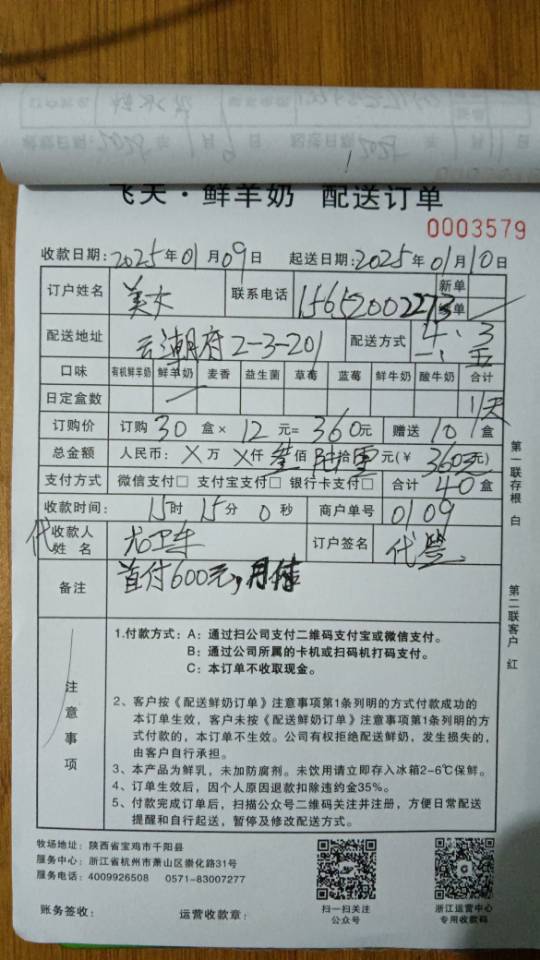 飞天·鲜羊奶 配送订单
0003579
收款日期：2025年01月09日 起送日期：2025年01月10日
订户姓名 美女 联系电话 15652002273 新单
单
配送地址 云潮府2-3-201 配送方式 四、三 一、五
口味 有机鲜羊奶 鲜羊奶 麦香 益生菌 草莓 蓝莓 鲜牛奶 酸牛奶 合计
日定盒数 1/天
订购价 订购30盒×12元=360元 赠送10盒
总金额 人民币：X万X仟叁佰陆拾零元(￥360元)
支付方式 微信支付□ 支付宝支付□ 银行卡支付□ 合计40盒
收款时间： 15时15分0秒 商户单号 0109
代收款人
姓 名 尤卫车 订户签名 代签
备注 首付600元，月付
注意事项
1.付款方式：A：通过扫公司支付二维码支付宝或微信支付。
B：通过公司所属的卡机或扫码机打码支付。
C：本订单不收取现金。
2、客户按《配送鲜奶订单》注意事项第1条列明的方式付款成功的
本订单生效，客户未按《配送鲜奶订单》注意事项第1条列明的方
式付款的，本订单不生效。公司有权拒绝配送鲜奶，发生损失的，
由客户自行承担。
3、本产品为鲜乳，未加防腐剂。未饮用请立即存入冰箱2-6℃保鲜。
4、订单生效后，因个人原因退款扣除违约金35%。
5、付款完成订单后，扫描公众号二维码关注并注册，方便日常配送
提醒和自行起送，暂停及修改配送方式。
第一联存根 白
第二联客户 红
牧场地址：陕西省宝鸡市千阳县
服务中心：浙江省杭州市萧山区崇化路31号
服务电话：4009926508 0571-83007277
扫一扫关注
公众号
浙江运营中心
专用收款码
账务签收： 运营收款章：